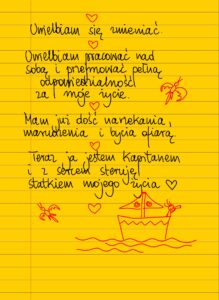 Uwielbiam się zmieniać.
Uwielbiam pracować nad
sobą i przejmować pełną
odpowiedzialność
za moje życie.
Mam już dość narzekania,
marudzenia i bycia ofiarą,
Teraz ja jestem kapitanem
i z sercem steruję
statkiem mojego życia ♡